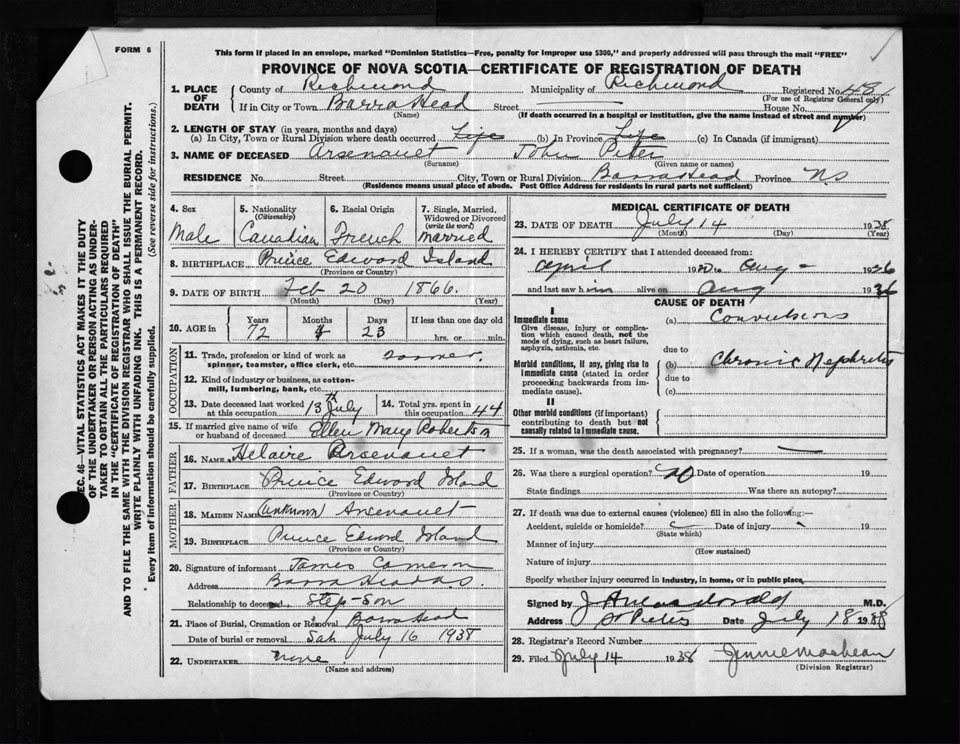 FORM 6
This form if placed in an envelope, marked "Dominion Statistics—Free, penalty for improper use $300," and properly addressed will pass through the mail "FREE"
PROVINCE OF NOVA SCOTIA—CERTIFICATE OF REGISTRATION OF DEATH
1. PLACE OF DEATH
County of Richmond Municipality of Richmond Registered No. 48
(For use of Registrar General only)
If in City or Town Barra Head Street House No.
(Name) (If death occurred in a hospital or institution, give the name instead of street and number)
2. LENGTH OF STAY (in years, months and days)
(a) In City, Town or Rural Division where death occurred Life (b) In Province Life (c) In Canada (if immigrant)
3. NAME OF DECEASED Arsenault John Peter
(Surname) (Given name or names)
RESIDENCE No. Street City, Town or Rural Division Barra Head Province N.S
(Residence means usual place of abode. Post Office Address for residents in rural parts not sufficient)
4. Sex Male
5. Nationality (Citizenship) Canadian
6. Racial Origin French
7. Single, Married, Widowed or Divorced (write the word) Married
8. BIRTHPLACE Prince Edward Island
(Province or Country)
9. DATE OF BIRTH Feb 20 1866
(Month) (Day) (Year)
10. AGE in Years Months Days If less than one day old
72 4 23 hrs. or min.
OCCUPATION
11. Trade, profession or kind of work as spinner, teamster, office clerk, etc. Farmer.
12. Kind of industry or business, as cotton-mill, lumbering, bank, etc.
13. Date deceased last worked at this occupation 13th July
14. Total yrs. spent in this occupation 44
15. If married give name of wife or husband of deceased Ellen Mary Robertson
FATHER
16. NAME Hilaire Arsenault
17. BIRTHPLACE Prince Edward Island
(Province or Country)
MOTHER
18. MAIDEN NAME (unknown) Arsenault
19. BIRTHPLACE Prince Edward Island
(Province or Country)
20. Signature of informant James Cameron
Address Barra Head N.S.
Relationship to deceased Step-Son
21. Place of Burial, Cremation or Removal Barra Head
Date of burial or removal Sat July 16 1938
22. UNDERTAKER none
(Name and address)
MEDICAL CERTIFICATE OF DEATH
23. DATE OF DEATH July 14 1938
(Month) (Day) (Year)
24. I HEREBY CERTIFY that I attended deceased from:
April 19 to Aug – 1936
and last saw him alive on Aug 1936
CAUSE OF DEATH
I
Immediate cause
Give disease, injury or complication which caused death, not the mode of dying, such as heart failure, asphyxia, asthenia, etc.
(a) Convulsions
due to
Morbid conditions, if any, giving rise to immediate cause (stated in order proceeding backwards from immediate cause).
(b) Chronic Nephritis
due to
(c)
II
Other morbid conditions (if important) contributing to death but not causally related to immediate cause.
25. If a woman, was the death associated with pregnancy?
26. Was there a surgical operation? no Date of operation 19
State findings Was there an autopsy?
27. If death was due to external causes (violence) fill in also the following:—
Accident, suicide or homicide? Date of injury 19
(State which)
Manner of injury
(How sustained)
Nature of injury
Specify whether injury occurred in industry, in home, or in public place
Signed by J A Macdonald M.D.
Address St Peters Date July 18 1938
28. Registrar's Record Number
29. Filed July 14 1938 Jennie MacLean
(Division Registrar)
SEC. 46—VITAL STATISTICS ACT MAKES IT THE DUTY OF THE UNDERTAKER OR PERSON ACTING AS UNDERTAKER TO OBTAIN ALL THE PARTICULARS REQUIRED IN THE "CERTIFICATE OF REGISTRATION OF DEATH" AND TO FILE THE SAME WITH THE DIVISION REGISTRAR WHO SHALL ISSUE THE BURIAL PERMIT.
WRITE PLAINLY WITH UNFADING INK. THIS IS A PERMANENT RECORD.
Every item of information should be carefully supplied. (See reverse side for instructions.)